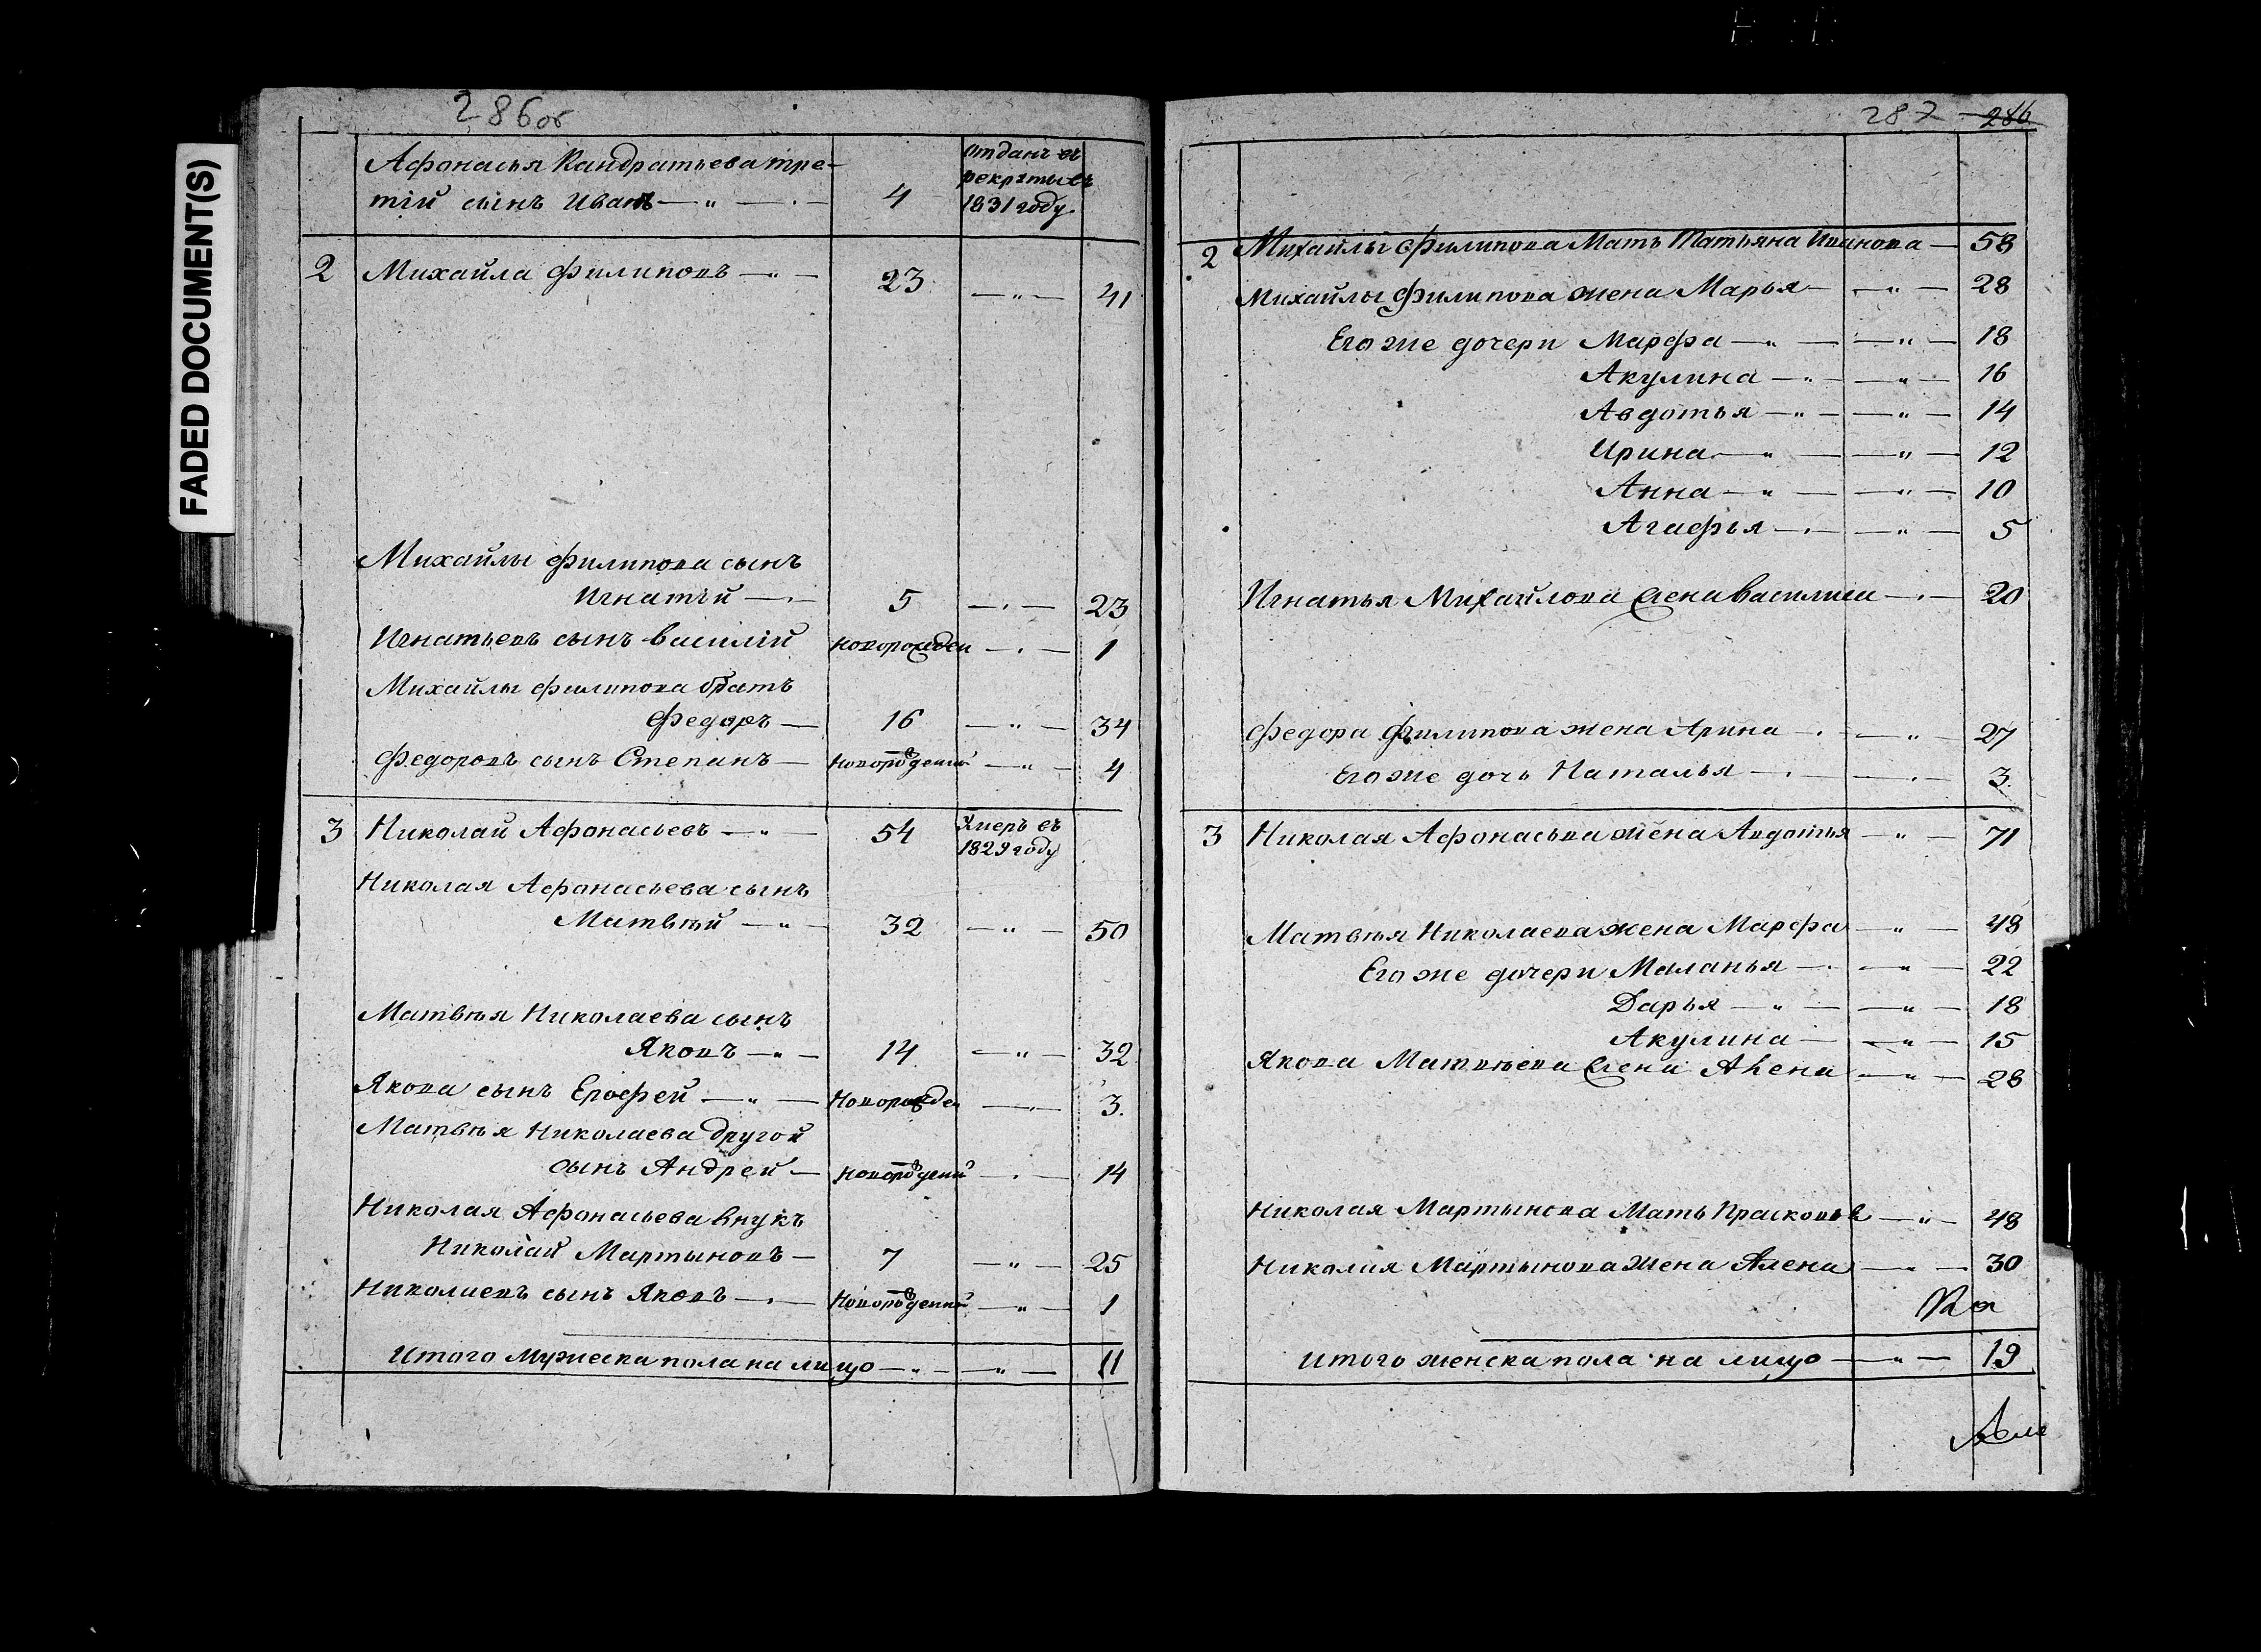 FADED DOCUMENT(S)
286об
Афонасья Кандратьева тре-
тій сынъ Иванъ — " — 4 отданъ въ
рекруты въ
1831 году.
2 Михайла Филиповъ — " — 23 — " — 41
Михайлы Филипова сынъ
Игнатій — 5 — " — 23
Игнатьевъ сынъ Василій новорожден — " — 1
Михайлы Филипова братъ
Федоръ — 16 — " — 34
Федоровъ сынъ Степанъ — новорожденый — " — 4
3 Николай Афонасьевъ — " — 54 Умеръ въ
1829 году
Николая Афонасьева сынъ
Матвѣй — " — 32 — " — 50
Матвѣя Николаева сынъ
Яковъ — " — 14 — " — 32
Якова сынъ Ерофей — " — новорожден — " — 3.
Матвѣя Николаева другой
сынъ Андрей — новорожденый — " — 14
Николая Афонасьева внукъ
Николай Мартыновъ — 7 — " — 25
Николаевъ сынъ Яковъ — " — новорожденный — " — 1
Итого мужеска пола на лицо — " — — " — 11
287 286
2 Михайлы Филипова Мать Татьяна Иванова — 58
Михайлы Филипова жена Марья — — " — 28
Его же дочери Марфа — " — — " — 18
Акулина — " — — " — 16
Авдотья — " — — " — 14
Ирина — " — — " — 12
Анна — " — — " — 10
Агафья — " — — " — 5
Игнатья Михайлова жена Василиса — " — 20
Федора Филипова жена Арина — " — — " — 27
Его же дочь Наталья — " — — " — 3.
3 Николая Афонасьва жена Авдотья — " — 71
Матвѣя Николаева жена Марфа — " — 48
Его же дочери Маланья — " — — " — 22
Дарья — " — — " — 18
Акулина — — " — 15
Якова Матвѣева жена Алена — " — 28
Николая Мартынова Мать Прасковья — " — 48
Николая Мартынова жена Алена — " — 30
итого женска пола на лицо — " — 19